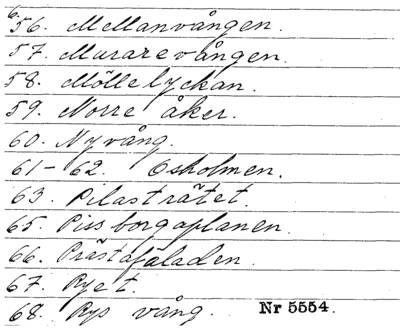 56. Mellanvången.
57. Murarevången.
58. Möllelyckan.
59. Norre åker.
60. Nyvång.
61-62. Osholmen.
63. Pilasträtet.
65. Pissborgaplanen.
66. Prästafäladen.
67. Ryet.
68. Rys vång. Nr 5554.